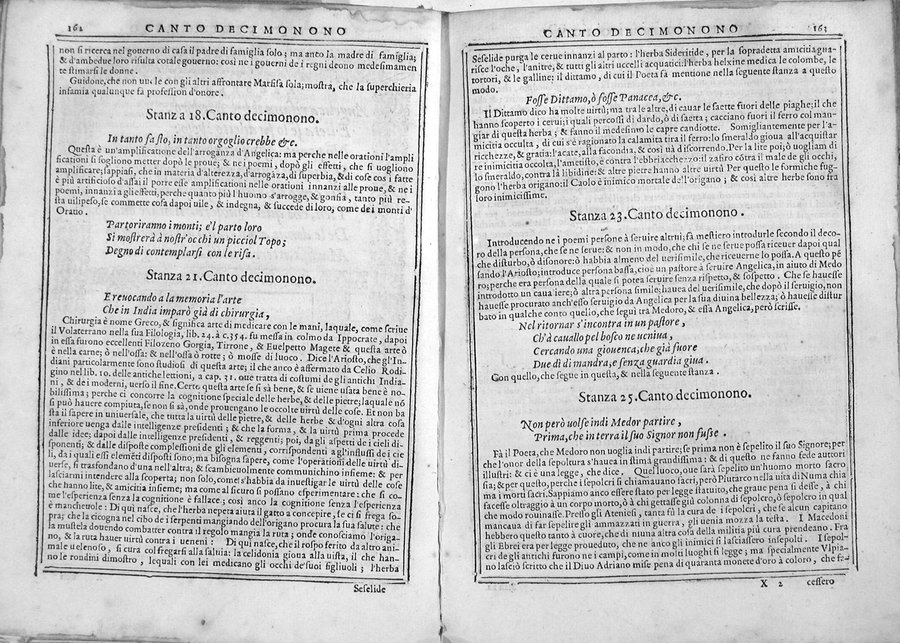 162 CANTO DECIMONONO
non si ricerca nel gouerno di casa il padre di famiglia solo; ma anto la madre di famiglia;
& d'ambedue loro risulta cotale gouerno: così ne i gouerni de i regni deono medesimamen
te stimarsi le donne.
Guidone, che non uuole con gli altri affrontare Marfisa sola; mostra, che la superchieria
infamia qualunque fa profession d'onore.
Stanza 18. Canto decimonono.
In tanto fasto, in tanto orgoglio crebbe &c.
Questa è un'amplificatione dell'arroganza d'Angelica: ma perche nelle orationi l'ampli
ficationi si sogliono metter dopo le proue; & ne i poemi, dopò gli effetti, che si uogliono
amplificare; sappiasi, che in materia d'alterezza, d'arrogāza, di superbia, & di cose così fatte
è più artificioso d'assai il porre esse amplificationi nelle orationi innanzi alle proue, & ne i
poemi, innanzi a gli effetti, perche quanto più l'huomo s'arrogge, & gonfia, tanto più re-
sta uilipeso, se commette cosa dapoi uile, & indegna, & succede di loro, come de i monti d'
Oratio.
Partoriranno i monti; e'l parto loro
Si mostrerà à nostr'occhi un picciol Topo;
Degno di contemplarsi con le risa.
Stanza 21. Canto decimonono.
E reuocando a la memoria l'arte
Che in India imparò già di chirurgia,
Chirurgia è nome Greco, & significa arte di medicare con le mani, laquale, come scriue
il Volaterrano nella sua Filologia, lib. 24. à c. 354. fu messa in colmo da Ippocrate, dapoi
in essa furono eccellenti Filozeno Gorgia, Tirrone, & Euelpetto Magete & questa arte ò
è nella carne; ò nell'ossa: & nell'ossa ò rotte; ò mosse di luoco. Dice l'Ariosto, che gl'In-
diani particolarmente sono studiosi di questa arte; il che anco è affermato da Celio Rodi-
gino nel lib. 10. delle antiche lettioni, a cap. 31. oue tratta di costumi de gli antichi India-
ni, & de i moderni, uerso il fine. Certo questa arte se si sà bene, & se uiene usata bene è no-
bilissima; perche ci concorre la cognitione speciale delle herbe, & delle pietre; laquale nō
si può hauere compiuta, se non si sà, onde prouengano le occolte uirtù delle cose. Et non ba
sta il sapere in uniuersale, che tutta la uirtù delle pietre, & delle herbe & d'ogni altra cosa
inferiore uenga dalle intelligenze presidenti; & che la forma, & la uirtù prima procede
dalle idee; dapoi dalle intelligenze presidenti, & reggenti; poi, da gli aspetti de i cieli di-
sponenti; & dalle disposte complessioni de gli elementi, corrispondenti a gl'influssi de i cie
li, da i quali essi elemēti disposti sono; ma bisogna sapere, come l'operationi delle uirtù di-
uerse, si trasfondano d'una nell'altra; & scambieuolmente communichino insieme: & per
lasciarmi intendere alla scoperta; non solo, come s'habbia da inuestigar le uirtù delle cose
che hanno lite, & amicitia insieme; ma come al sicuro si possano esperimentare: che si co-
me l'esperienza senza la cognitione è fallace: così anco la cognitione senza l'esperienza
è mancheuole: Di quì nasce, che l'herba nepera aiuta il gatto a concepire, se ci si frega so-
pra; che la cicogna nel cibo de i serpenti mangiando dell'origano procura la sua salute: che
la mustela douendo combatter contra il regolo mangia la ruta; onde conosciamo l'origa-
no, & la ruta hauer uirtù contra i ueneni: Di quì nasce, che il rospo ferito da altro ani-
male uelenoso, si cura col fregarsi alla saluia: la celidonia gioua alla uista, il che han-
no le rondini dimostro, lequali con lei medicano gli occhi de' suoi figliuoli; l'herba
Seselide
CANTO DECIMONONO 163
Seselide purga le cerue innanzi al parto: l'herba Sideritide, per la sopradetta amicitia gua-
risce l'oche, l'anitre, & tutti gli altri uccelli acquatici: l'herba helxine medica le colombe, le
tortori, & le galline; il dittamo, di cui il Poeta fa mentione nella seguente stanza a questo
modo.
Fosse Dittamo, ò fosse Panacea, &c.
Il Dittamo dico ha molte uirtù; ma tra le altre, di cauar le saette fuori delle piaghe; il che
hanno scoperto i cerui; i quali percossi di dardo, ò di saetta; cacciano fuori il ferro col man-
giar di questa herba; & fanno il medesimo le capre candiotte. Somigliantemente per l'a-
micitia occulta, di cui s'è ragionato la calamita tira il ferro: lo smeraldo gioua all'acquistar
ricchezze, & gratia: l'acate, alla faconda, & così và discorrendo. Per la lite poi; ò uogliam di
re inimicitia occolta, l'ametisto, è contra l'ebbriachezza: il zafiro cōtra il male de gli occhi,
lo smeraldo, contra la libidine: & altre pietre hanno altre uirtù Per questo le formiche fug-
gono l'herba origano: il Caolo è inimico mortale dell'origano; & così altre herbe sono fra
loro inimicissime.
Stanza 23. Canto decimonono.
Introducendo ne i poemi persone à seruire altrui; fà mestiero introdurle secondo il deco-
ro della persona, che se ne serue: & non in modo, che chi se ne serue possa riceuer dapoi qual
che disturbo, ò disonore: ò habbia almeno del uerisimile, che riceuerne lo possa. A questo pē
sando l'Ariosto; introduce persona bassa, cioe un pastore à seruire Angelica, in aiuto di Medo
ro; perche era persona della quale si potea seruire senza rispetto, & sospetto. Che se hauesse
introdotto un caualiere; ò altra persona simile; hauea del uerisimile, che dopò il seruigio, non
hauesse procurato anch'esso seruigio da Angelica per la sua diuina bellezza; ò hauesse distur
bato in qualche conto quello, che seguì tra Medoro, & essa Angelica, però scrisse.
Nel ritornar s'incontra in un pastore,
Ch'à cauallo pel bosco ne ueniua,
Cercando una giouenca, che già fuore
Due dì di mandra, e senza guardia giua.
Con quello, che segue in questa, & nella seguente stanza.
Stanza 25. Canto decimonono.
Non però uolse indi Medor partire,
Prima, che in terra il suo Signor non fusse.
Fà il Poeta, che Medoro non uoglia indi partire; se prima non è sepelito il suo Signore; per
che l'honor della sepoltura s'hauea in stima grandissima: & di questo ne fanno fede auttori
illustri: & ci è una legge, che dice. Quel luoco, oue sarà sepelito un'huomo morto sacro
sia; & per questo, perche i sepolcri si chiamauano sacri, però Plutarco nella uita di Numa chia
ma i morti sacri. Sappiamo anco essere stato per legge statuito, che graue pena si desse, à chi
facesse oltraggio à un corpo morto, ò à chi gettasse giù colonna di sepolcro, ò sepolcro in qual
che modo rouinasse. Presso gli Ateniesi, tanta fù la cura de i sepolcri, che se alcun capitano
mancaua di far sepelire gli ammazzati in guerra, gli uenia mozza la testa. I Macedoni
hebbero questo tanto à cuore, che di niuna altra cosa della militia più cura prendeano. Fra
gli Ebrei era per legge proueduto, che ne anco gli inimici si lasciassero insepolti. I sepol-
cri de gli antichi furono ne i campi, come in molti luoghi si legge; ma specialmente Vlpia-
no lasciò scritto che il Diuo Adriano mise pena di quaranta monete d'oro à coloro, che fa-
X 2 cessero